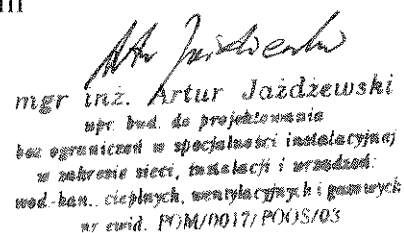 m
mgr inż. Artur Jażdżewski
upr. bud. do projektowania
bez ograniczeń w specjalności instalacyjnej
w zakresie sieci, instalacji i urządzeń:
wod.-kan., cieplnych, wentylacyjnych i gazowych
nr ewid. POM/0017/POOS/03